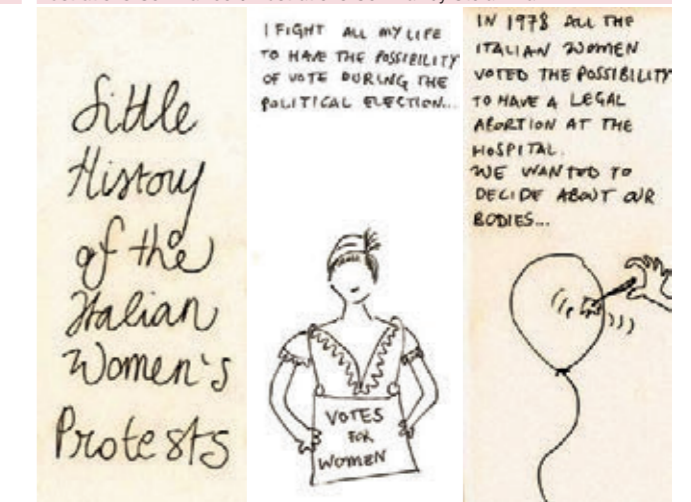 Little
History
of the
Italian
Women's
Protests
I FIGHT ALL MY LIFE
TO HAVE THE POSSIBILITY
OF VOTE DURING THE
POLITICAL ELECTION...
VOTES
FOR
WOMEN
IN 1978 ALL THE
ITALIAN WOMEN
VOTED THE POSSIBILITY
TO HAVE A LEGAL
ABORTION AT THE
HOSPITAL.
WE WANTED TO
DECIDE ABOUT OUR
BODIES...